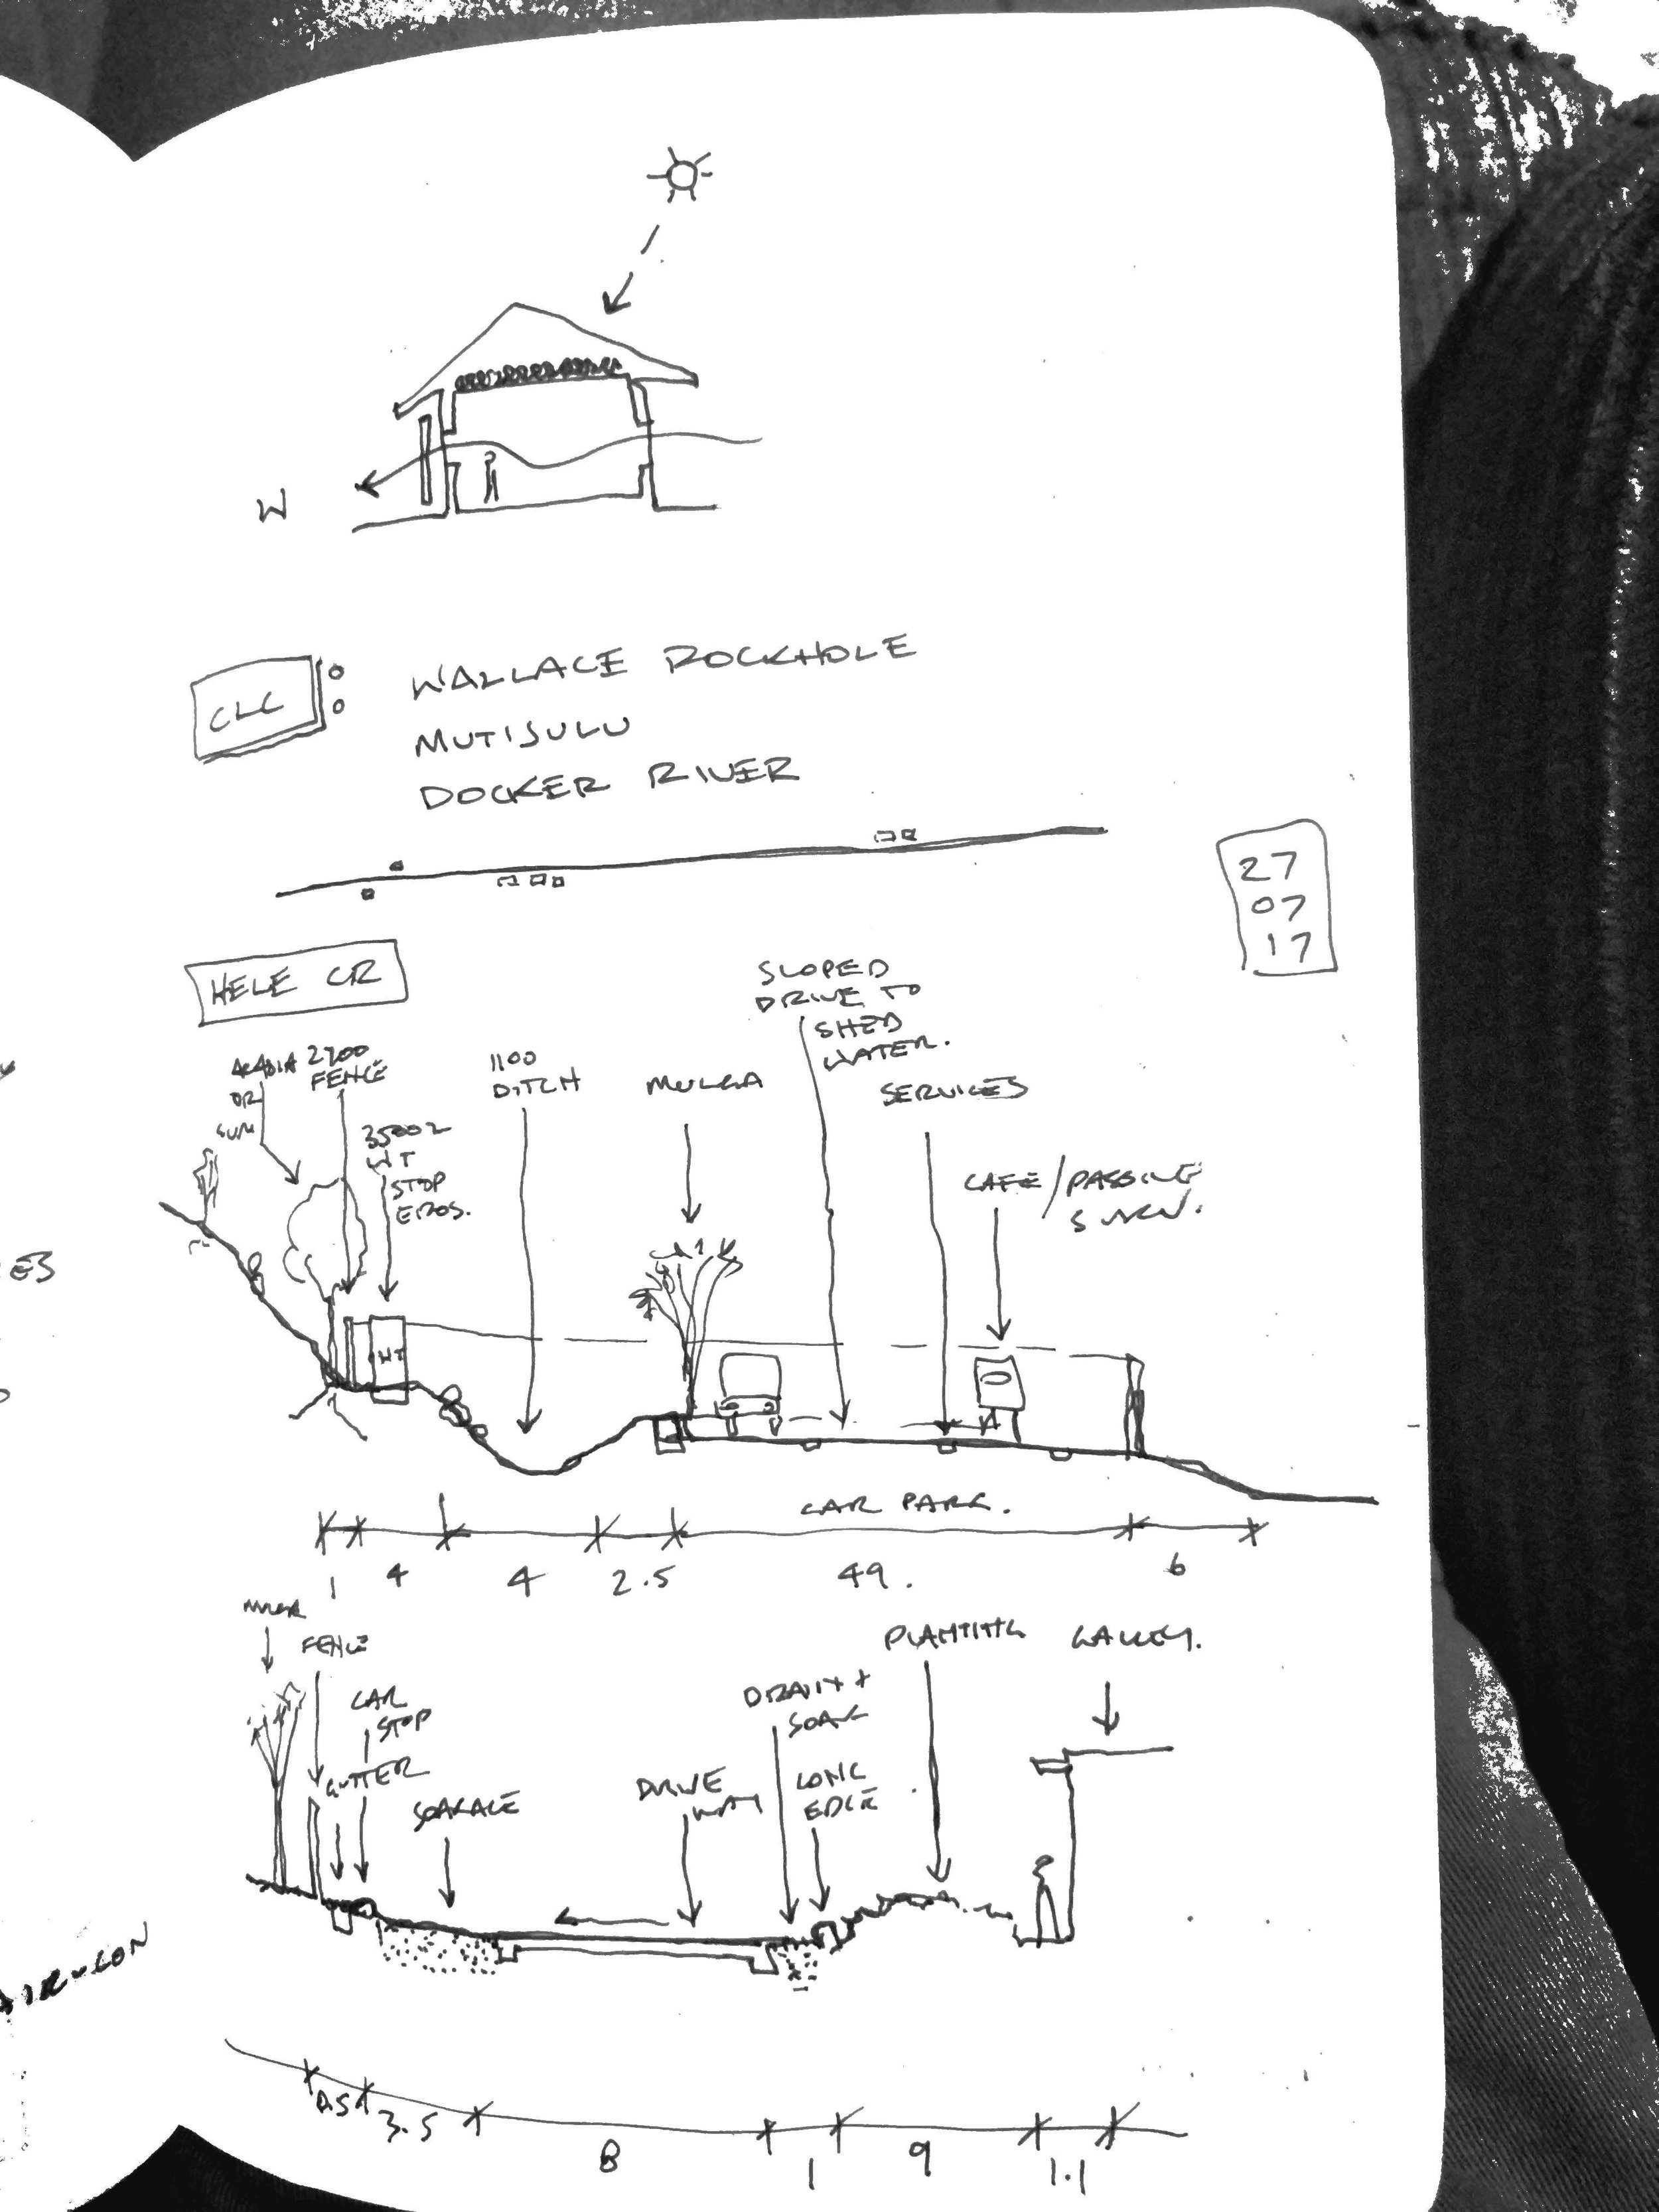 W
CLC
WALLACE ROCKHOLE
MUTIJULU
DOCKER RIVER
27
07
17
HELE CR
2700
FENCE
OR
1100
DITCH
MULGA
SLOPED
DRIVE TO
SHED
WATER.
SERVICES
WT
STOP
EROS.
CAFE / PASSIVE
WT
CAR PARK.
1
4
4
2.5
49.
6
FENCE
CAR
STOP
GUTTER
SOAKAGE
DRIVE
WAY
DRAIN +
SOAK
LONG
EDGE
PLANTING
ES
AIR-CON
3.5
8
1
9
1.1